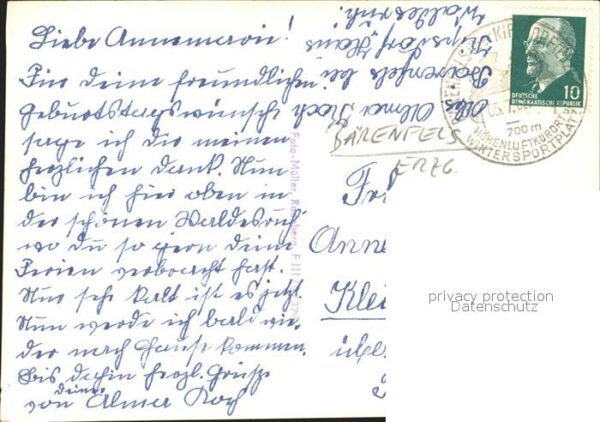 Liebe Annemarie!
Für deine freundlichen
Geburtstagswünsche
sage ich dir meinen
herzlichen Dank. Nun
bin ich hier oben in
der schönen Waldesruh'
wo du so gern deine
Ferien verbracht hast.
Nur sehr kalt ist es jetzt.
Nun werde ich bald wie-
der nach Hause kommen.
Bis dahin herzl. Grüße
von deiner Alma Koch
Abs. Alma Koch
Bärenfels bei
Kipsdorf Haus
Waldesruh.
BÄRENFELS
ERZG.
Foto-Müller,
DEUTSCHE
DEMOKRATISCHE REPUBLIK
10
700 m
HÖHENLUFTKURORT u.
WINTERSPORTPLATZ
Anne
Klei
über
privacy protection
Datenschutz